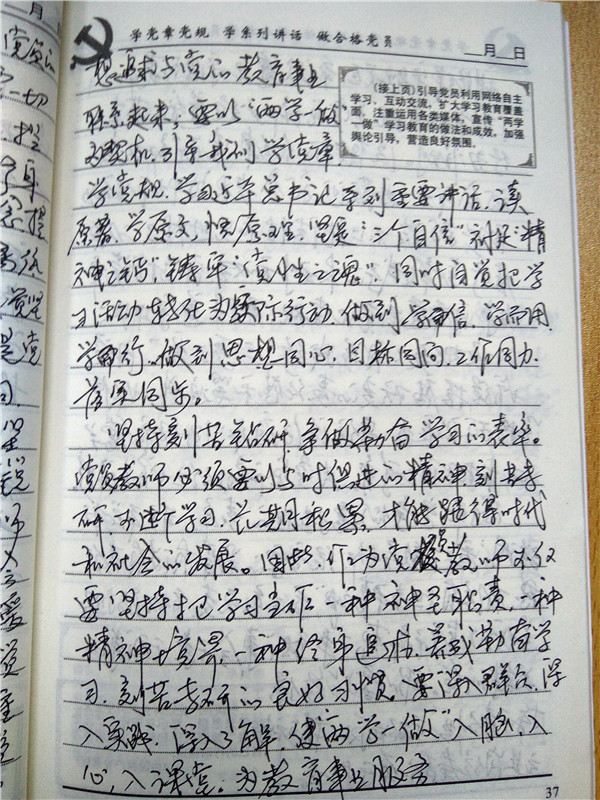 学党章党规 学系列讲话 做合格党员
月 日
(接上页)引导党员利用网络自主
学习、互动交流,扩大学习教育覆盖
面。注重运用各类媒体,宣传“两学
一做”学习教育的做法和成效,加强
舆论引导,营造良好氛围。
想追求与党的教育事业
联系起来;要以“两学一做”
为契机,引导我们学党章
学党规,学习近平总书记系列重要讲话,读
原著,学原文,悟原理,坚定“三个自信”补足“精
神之钙”,铸牢“党性之魂”,同时自觉把学
习活动转化为实际行动,做到学而信,学而用,
学而行。做到思想同心,目标同向,工作同力,
落实同步。
坚持刻苦钻研,争做勤奋学习的表率。
党员教师必须要以与时俱进的精神刻苦钻
研,不断学习,长期积累,才能跟得时代
和社会的发展。因此,作为党员教师不仅
要坚持把学习当作一种神圣职责,一种
精神境界,一种终身追求,养成勤奋学
习,刻苦钻研的良好习惯。要深入群众,深
入实践,深入了解,使“两学一做”入脑,入
心,入课堂。为教育事业服务
37